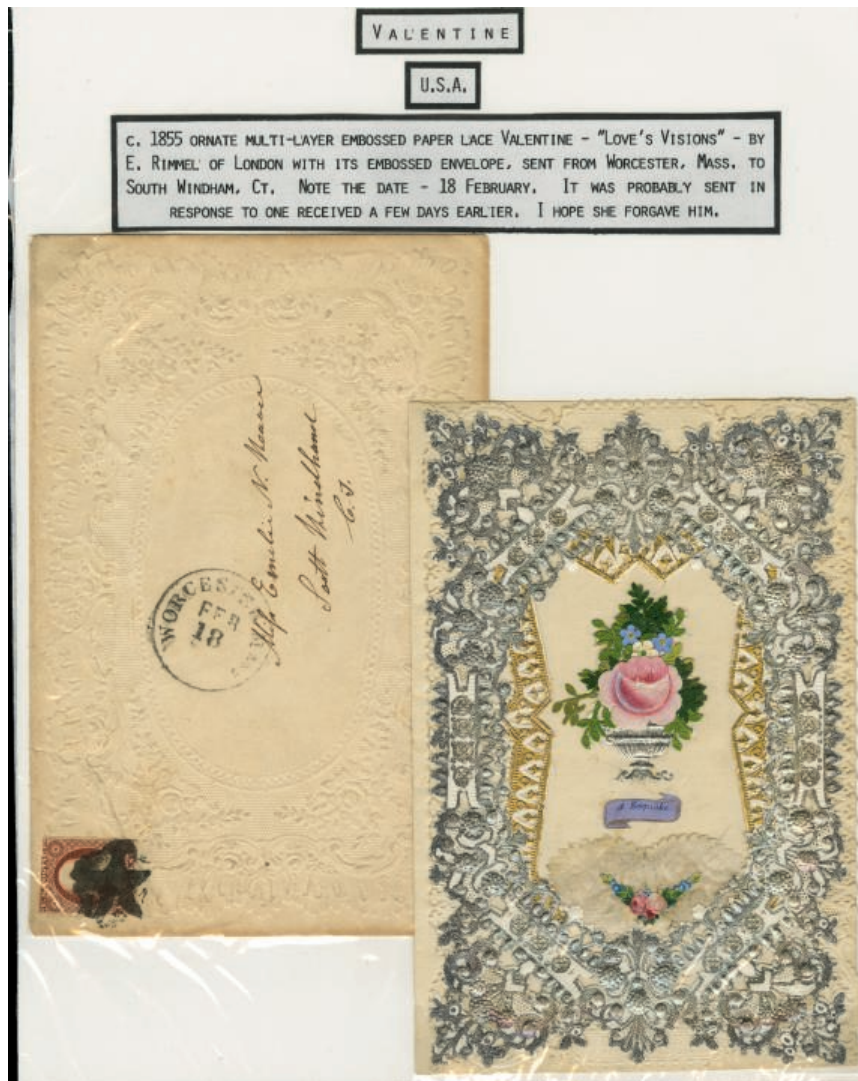 VALENTINE
U.S.A.
C. 1855 ORNATE MULTI-LAYER EMBOSSED PAPER LACE VALENTINE - "LOVE'S VISIONS" - BY
E. RIMMEL OF LONDON WITH ITS EMBOSSED ENVELOPE, SENT FROM WORCESTER, MASS. TO
SOUTH WINDHAM, CT. NOTE THE DATE - 18 FEBRUARY. IT WAS PROBABLY SENT IN
RESPONSE TO ONE RECEIVED A FEW DAYS EARLIER. I HOPE SHE FORGAVE HIM.
Miss Emelie N.
South Windham
C.T.
WORCESTER
FEB
18
A Keepsake